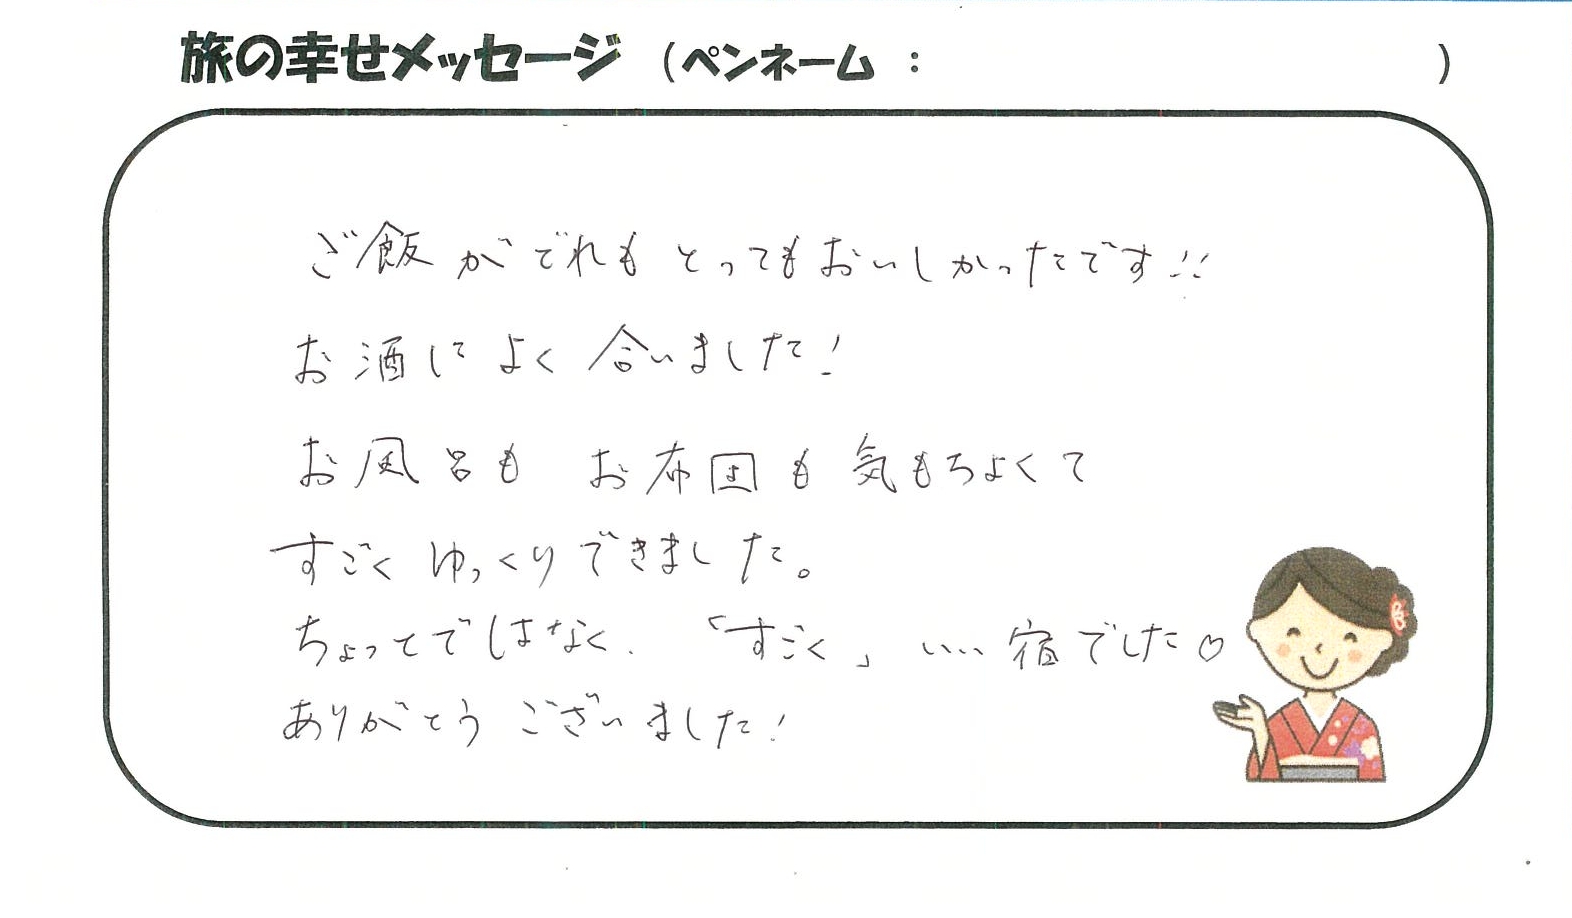 旅の幸せメッセージ (ペンネーム : )
ご飯がどれもとってもおいしかったです!!
お酒によく合いました!
お風呂も お布団も気もちよくて
すごくゆっくりできました。
ちょっとではなく、「すごく」いい宿でした♡
ありがとうございました!